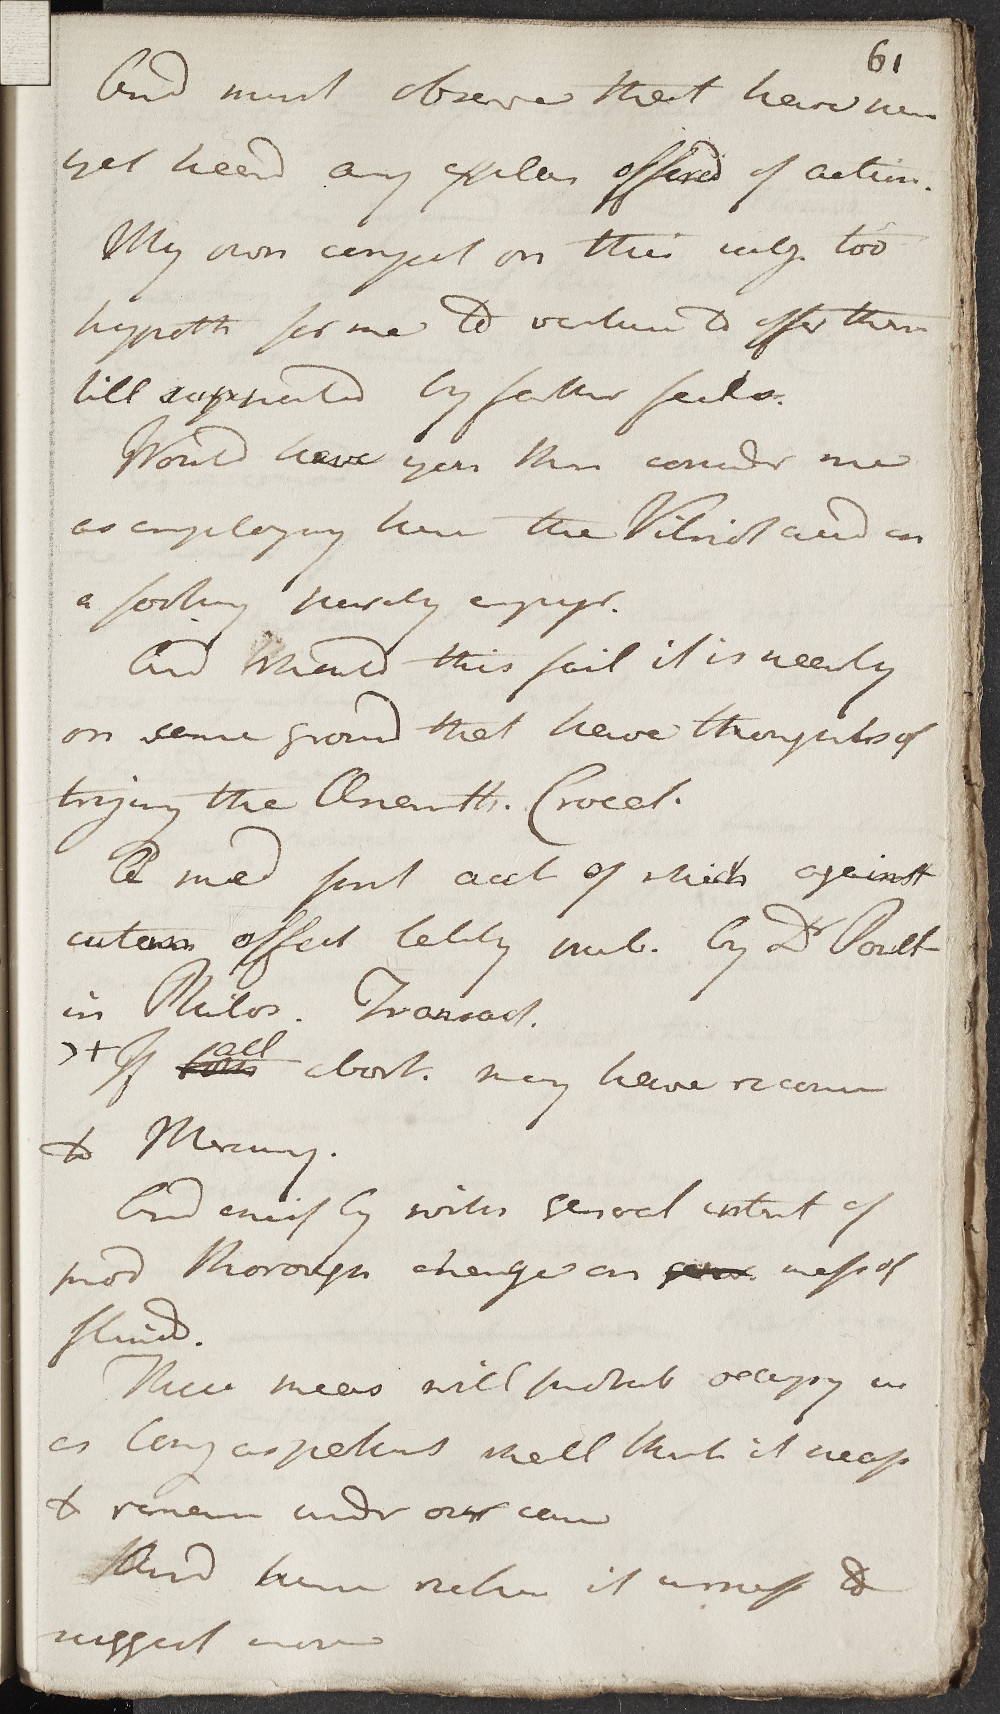 61
And must observe that have nev
yet heard any explan offered of action.
My own conject on this subj. too
hypoth for me to venture to offer them
till supported by farther facts.
Would have you then consider me
as employing here the Vitriol acid on
a footing merely empyr.
And should this fail it is nearly
on same ground that have thoughts of
trying the Oenanth. Crocat.
A med first acct of which against
cutans effect lately pub. by Dr Poult
in Philos. Transact.
>+ If all abort. may have recour
to Mercury.
And empl by with general intent of
prod thorough change on mass of
fluids.
These meas will probab occupy us
as long as patient shall think it necess
to remain under our care
And hence rather it unness to
suggest more